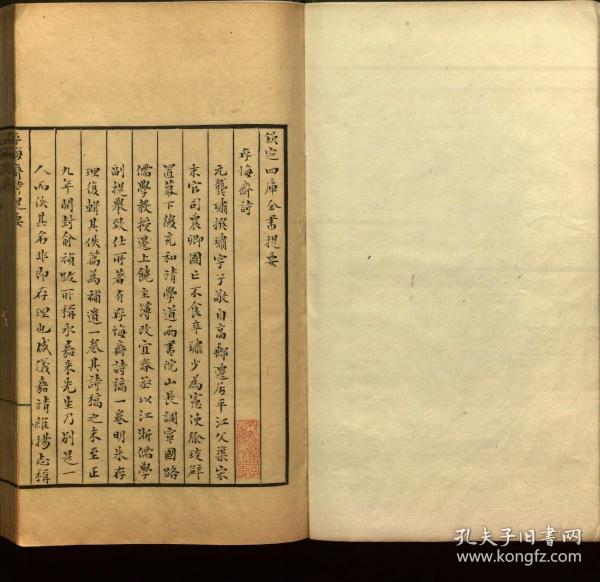 欽定四庫全書提要
存悔齋詩
元龔璛撰璛字子敬自高郵遷居平江父潗宋
末官司農卿國亡不食卒璛少為憲使徐琰辟
置幕下後充和靖學道兩書院山長調寧國路
儒學教授遷上饒主簿改宜春丞以江浙儒學
副提舉致仕所著有存悔齋詩稿一卷明朱存
理復輯其佚篇為補遺一卷其詩稿之末至正
九年開封俞楨跋所稱永嘉朱先生乃別是一
人而佚其名非即存理也盛儀嘉靖維揚志稱
存悔齋詩提要
孔夫子旧书网
www.kongfz.com